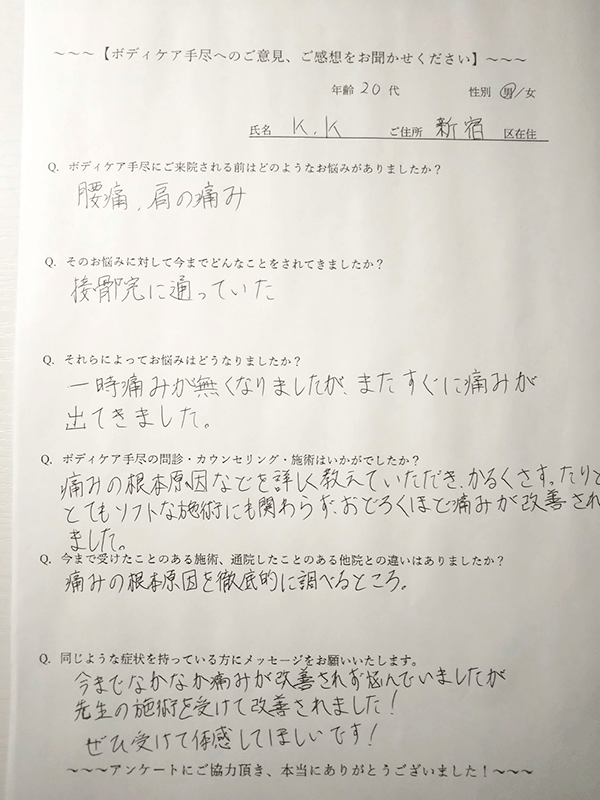 ～～～【ボディケア手尽へのご意見、ご感想をお聞かせください】～～～
年齢 20 代　性別 男／女
氏名 K.K ご住所 新宿 区在住
Q. ボディケア手尽にご来院される前はどのようなお悩みがありましたか？
腰痛、肩の痛み
Q. そのお悩みに対して今までどんなことをされてきましたか？
接骨院に通っていた
Q. それらによってお悩みはどうなりましたか？
一時痛みが無くなりましたが、またすぐに痛みが
出てきました。
Q. ボディケア手尽の問診・カウンセリング・施術はいかがでしたか？
痛みの根本原因などを詳しく教えていただき、かるくさすったりと
とてもソフトな施術にも関わらず、おどろくほど痛みが改善され
ました。
Q. 今まで受けたことのある施術、通院したことのある他院との違いはありましたか？
痛みの根本原因を徹底的に調べるところ。
Q. 同じような症状を持っている方にメッセージをお願いいたします。
今までなかなか痛みが改善されず悩んでいましたが
先生の施術を受けて改善されました！
ぜひ受けて体感してほしいです！
～～～アンケートにご協力頂き、本当にありがとうございました！～～～